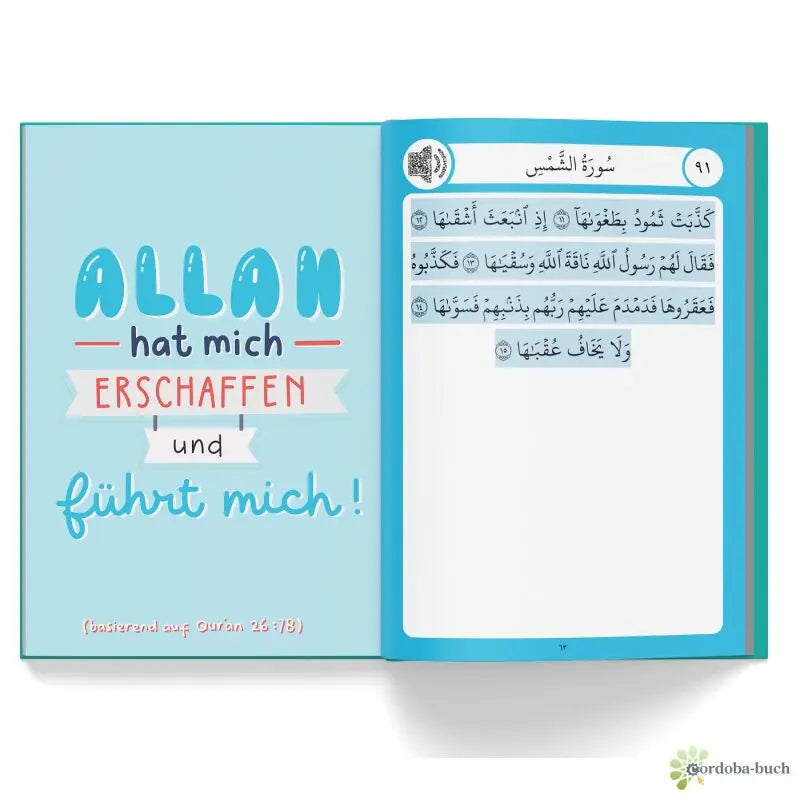 ALLAH
hat mich
ERSCHAFFEN
und
führt mich!
(basierend auf Qur'an 26:78)
سُورَةُ الشَّمْسِ
٩١
كَذَّبَتْ ثَمُودُ بِطَغْوَىٰهَآ ١١ إِذِ ٱنۢبَعَثَ أَشْقَىٰهَا ١٢
فَقَالَ لَهُمْ رَسُولُ ٱللَّهِ نَاقَةَ ٱللَّهِ وَسُقْيَـٰهَا ١٣ فَكَذَّبُوهُ
فَعَقَرُوهَا فَدَمْدَمَ عَلَيْهِمْ رَبُّهُم بِذَنۢبِهِمْ فَسَوَّىٰهَا ١٤
وَلَا يَخَافُ عُقْبَـٰهَا ١٥
٦٣
cordoba-buch